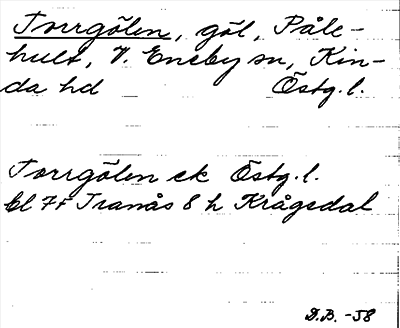 Torrgölen, göl, Påle-
hult, V. Eneby sn, Kin-
da hd Östg. l.
Torrgölen ek Östg. l.
bl 7F Tranås 8 h Krågedal
D.B. -58